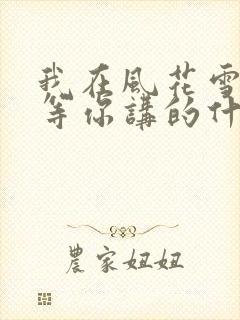 我在風花雪
等你講的什
農家妞妞